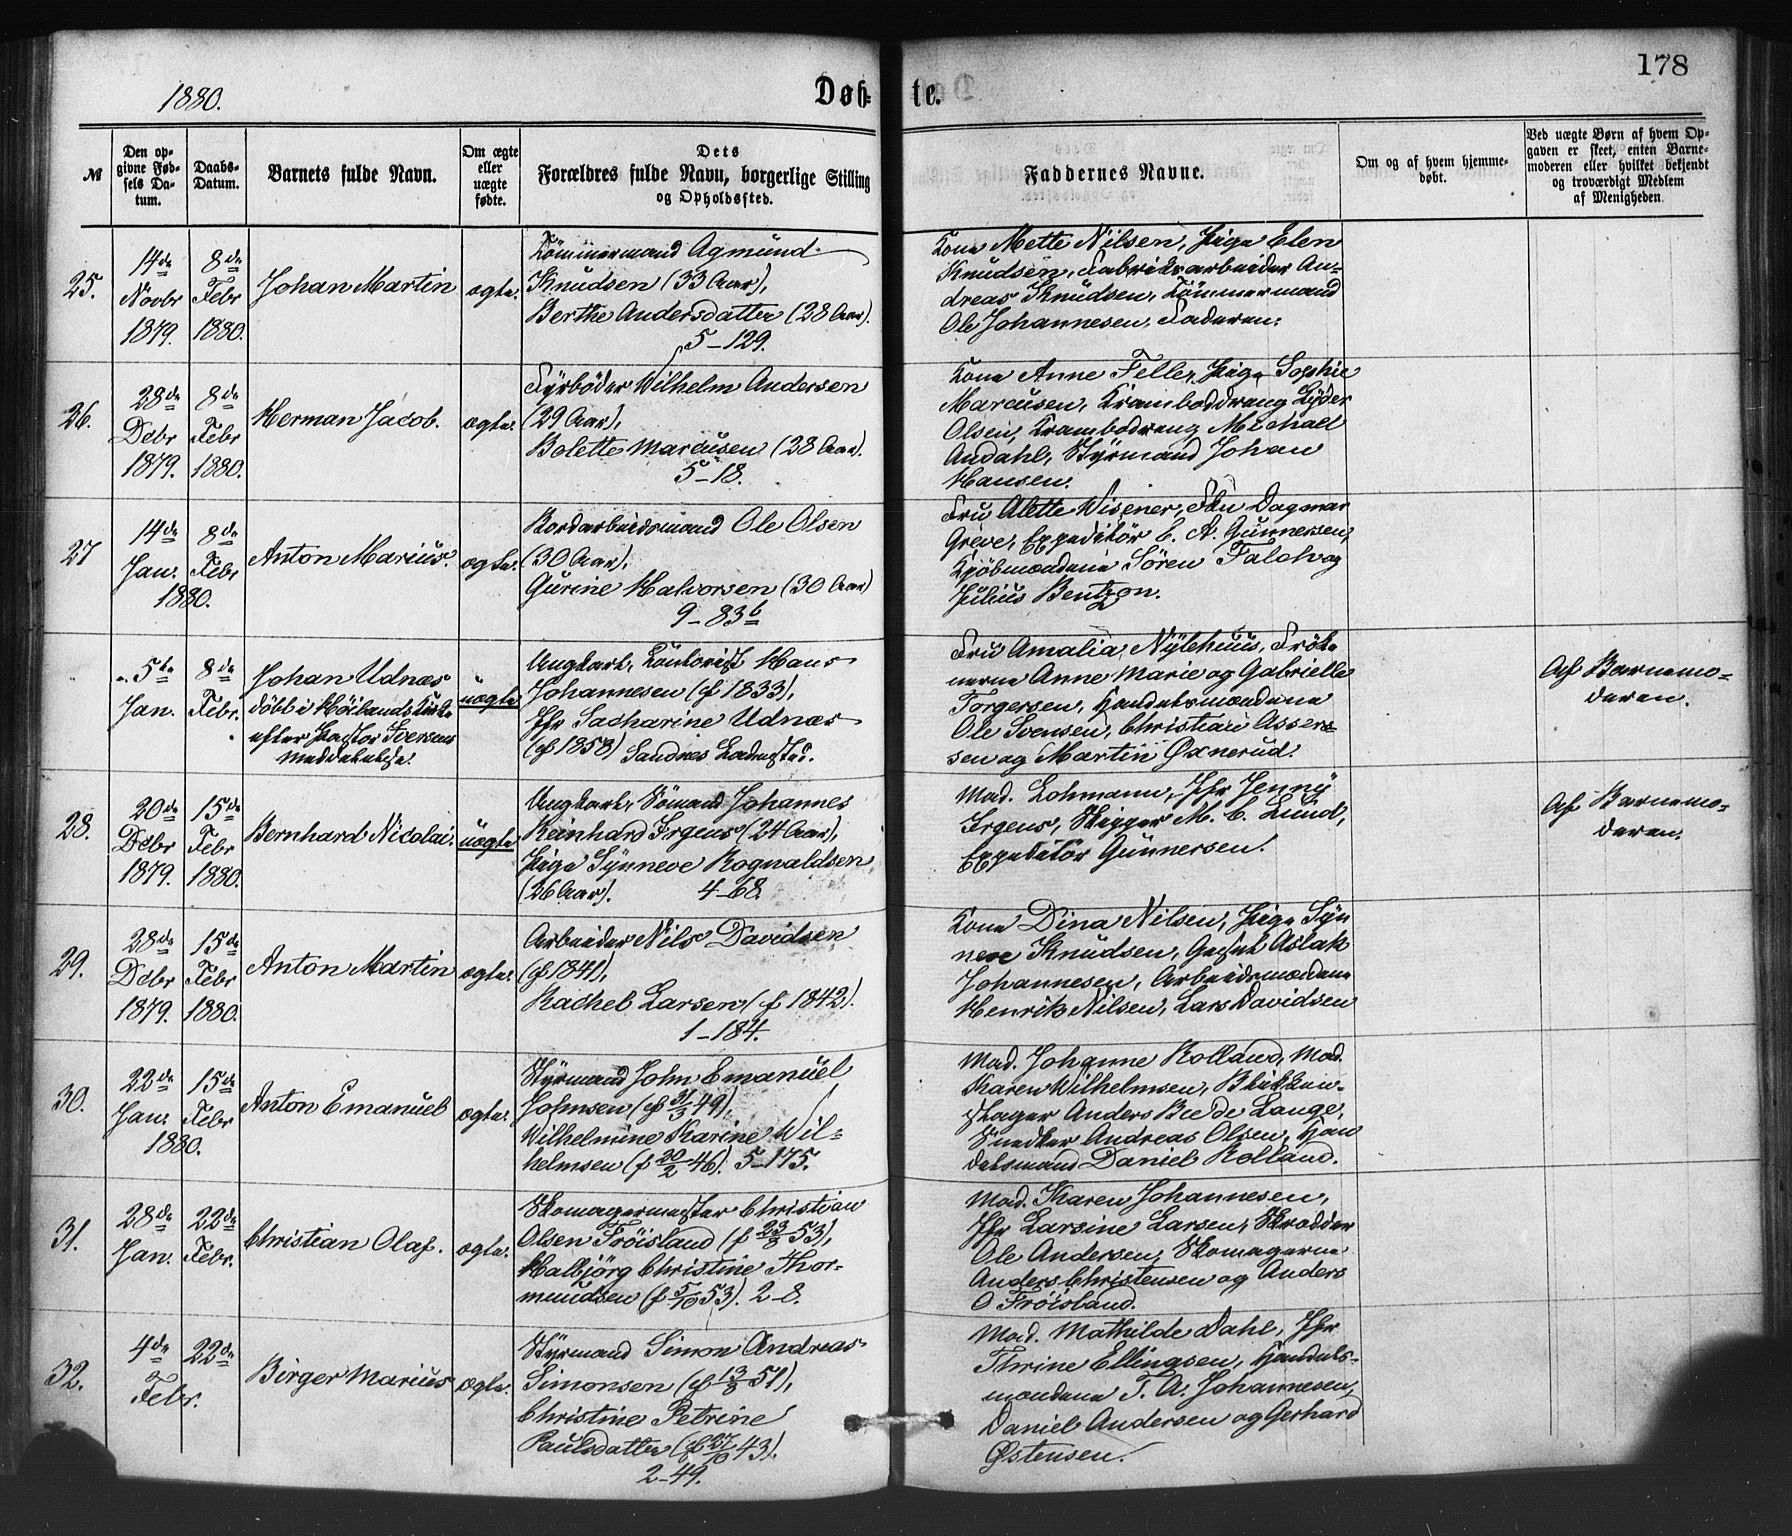 178
1880.
Døb-
te.
№
Den op-
givne Fød-
sels Da-
tum.
Daabs-
Datum.
Barnets fulde Navn.
Om ægte
eller
uægte
fødte.
Dets
Forældres fulde Navn, borgerlige Stilling
og Opholdssted.
Faddernes Navne.
Om og af hvem hjemme-
døbt.
Ved uægte Børn af hvem Op-
gaven er skeet, enten Barne-
moderen eller hvilket bekjendt
og troværdigt Medlem
af Menigheden.
25.
14de
Novbr
1879.
8de
Febr
1880.
Johan Martin
ægte.
Tömmermand Agmund
Knudsen (33 Aar),
Berthe Andersdatter (28 Aar).
5-129.
Kone Mette Nilsen, Pige Elen
Knudsen, Fabrikarbeider An-
dreas Knudsen, Tömmermand
Ole Johannesen, Faderen.
26.
28de
Dcbr
1879.
8de
Febr
1880.
Herman Jacob.
ægte.
Fyrböder Wilhelm Andersen
(29 Aar),
Bolette Marcusen (28 Aar).
5-18.
Kone Anne Feller, Pige Sophie
Marcusen, Kramboddreng Lyder
Olsen, Krambodreng Michael
Andahl, Styrmand Johan
Hansen.
27
14de
Jan.
1880.
8de
Febr
Anton Marius.
ægte.
Bordarbeidsmand Ole Olsen
(30 Aar),
Gurine Halvorsen (30 Aar)
9-83b
Fru Alette Wisener, Fru Dagmar
Greve, Expeditör C. A. Gunnersen,
Kjöbmændene Sören Falch og
Julius Bentzon.
5te
Jan.
8de
Febr.
Johan Udnæs
döbt i Höilands Kirke
efter Pastor Iversens
Meddelelse.
uægte
Ungkarl, Kontorist Hans
Johannesen (f 1833),
Jfr Sacharine Udnæs
(f 1858) Sandnes Ladested.
Fru Amalia Nylehuus, Fröke
nerne Anne Marie og Gabrielle
Torgersen, Handelsmændene
Ole Svensen, Christian Assers-
sen og Martin Øxnerud.
Af Barnemo-
deren.
28.
20de
Dcbr
1879.
15de
Febr
1880.
Bernhard Nicolai.
uægte
Ungkarl, Sömand Johannes
Reinhard Irgens (24 Aar),
Pige Synneve Rognvaldsen
(26 Aar). 4-68.
Mad. Lohmann, Jfr Jenny
Irgens, Skipper M. C. Lund,
Expeditör Gunnersen.
Af Barnemo-
deren.
29.
28de
Dcbr
1879.
15de
Febr
1880.
Anton Martin
ægte.
Arbeider Nils Davidsen
(f 1841),
Rachel Larsen (f 1842).
1-184.
Kone Dina Nilsen, Pige Syn
neve Knudsen, Gesel Aslak
Johannesen, Arbeidsmændene
Henrik Nilsen, Lars Davidsen
30.
22de
Jan.
1880.
15de
Febr
Anton Emanuel
ægte.
Styrmand John Emanuel
Johnsen (f 31/3 49),
Wilhelmine Karine Wil-
helmsen (f 20/2 46). 5-175.
Mad. Johanne Rolland, Mad.
Karen Wilhelmsen, Blikken-
slager Anders Bee de Lange,
Snedker Andreas Olsen, Han
delsmand Daniel Rolland.
31.
28de
Jan.
22de
Febr.
Christian Olaf.
ægte.
Skomagermester Christian
Olsen Fröisland (f 23/8 53),
Halbjörg Christine Thor-
mundsen (f 5/10 53). 2-8.
Mad. Karen Johannesen,
Jfr Larsine Larsen, Skrædder
Ole Andersen, Skomagerne
Anders Christensen og Anders
O Fröisland.
32.
4de
Febr.
22de
Birger Marius
ægte.
Styrmand Simon Andreas
Simonsen (f 13/8 51),
Christine Petrine
Paulsdatter (f 27/10 43).
2-49.
Mad. Mathilde Dahl, Jfr
Thrine Ellingsen, Handels-
mændene T. A. Johannesen,
Daniel Andersen og Gerhard
Østensen.